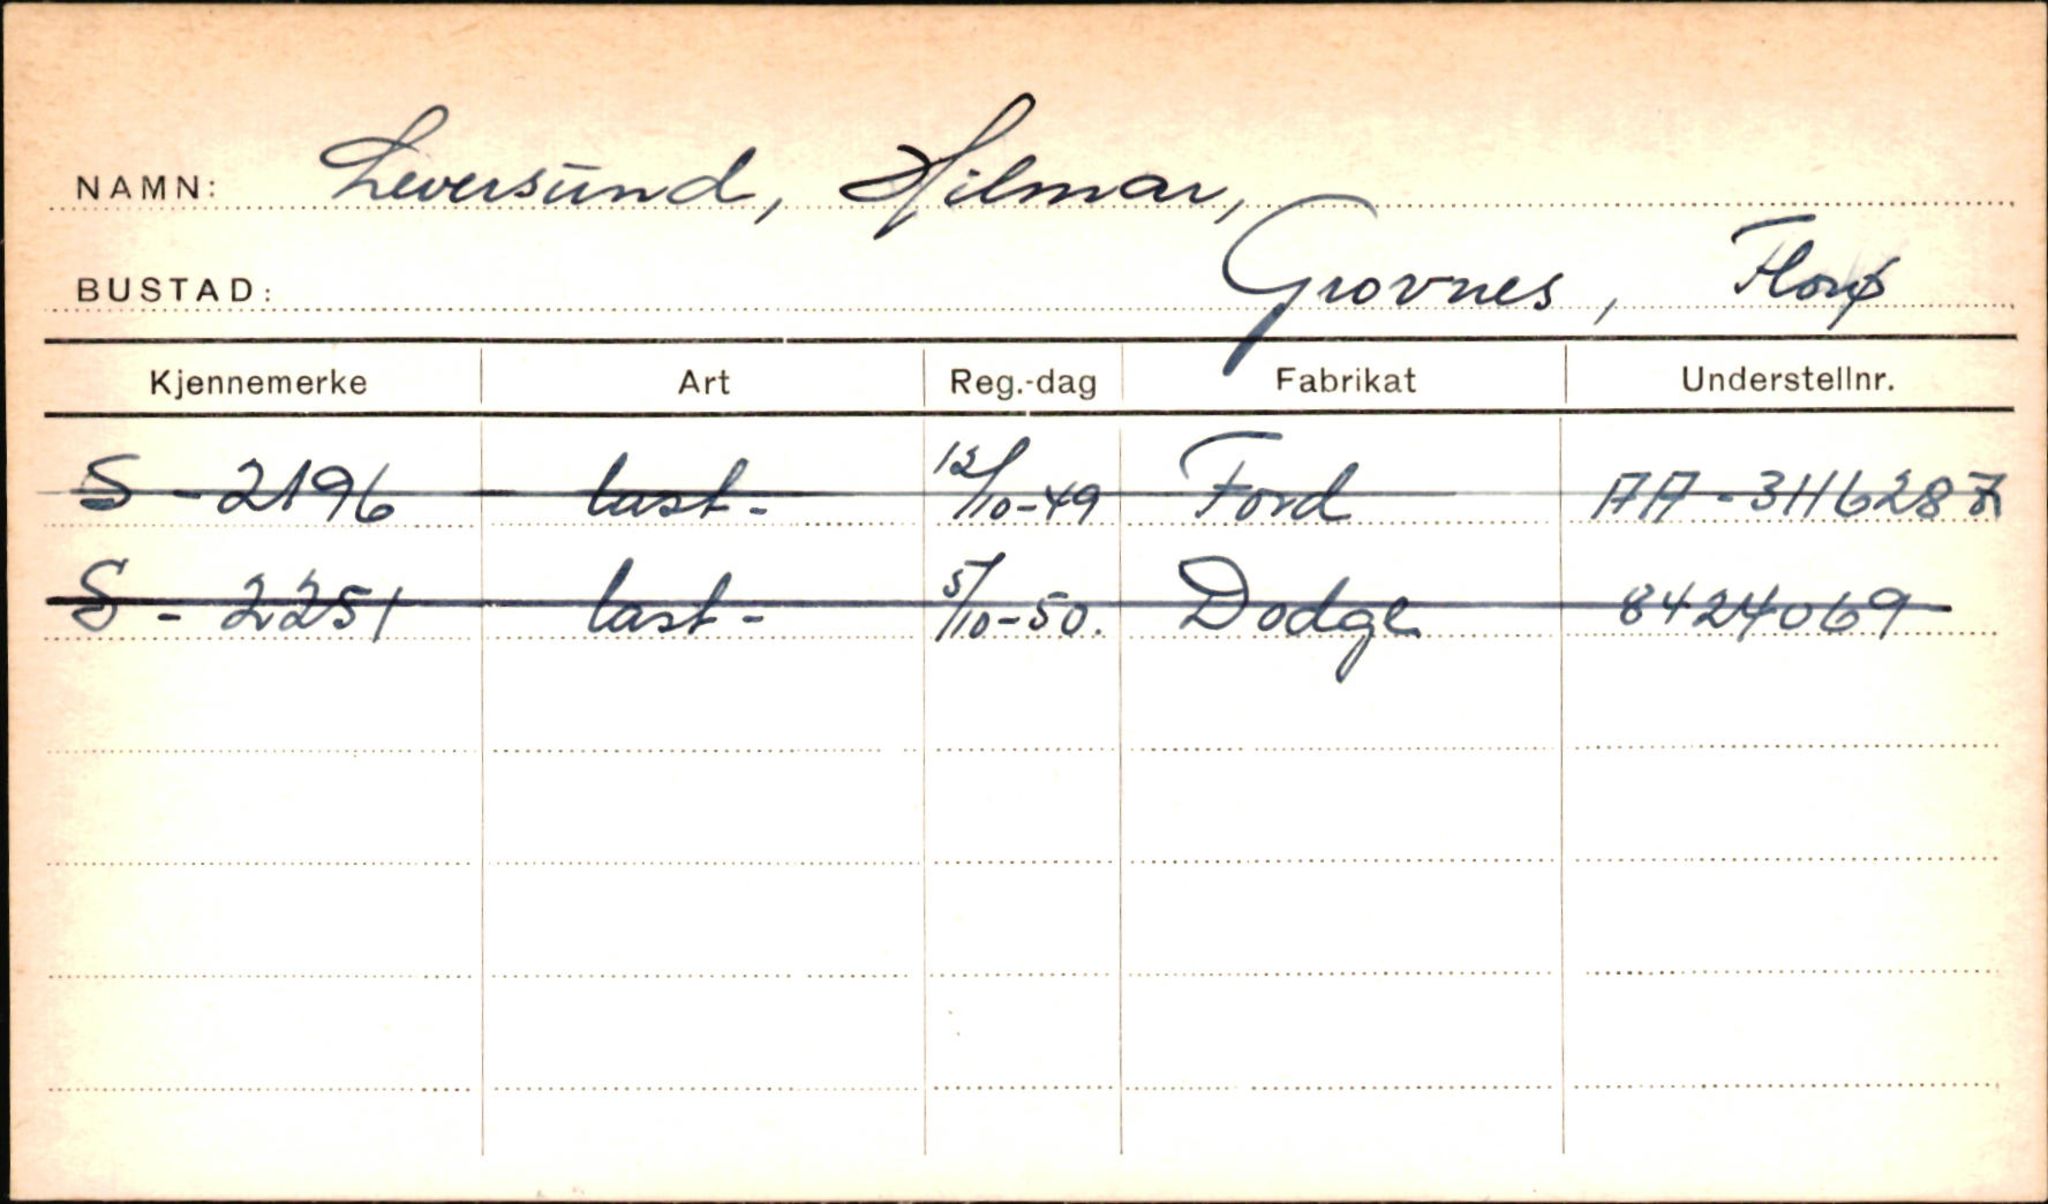 NAMN: Leversund, Hilmar,
BUSTAD: Grovnes, Florø
Kjennemerke Art Reg.-dag Fabrikat Understellnr.
S - 2196 last- 12/10-49 Ford AA-3116287
S - 2251 last- 5/10-50. Dodge 8424069